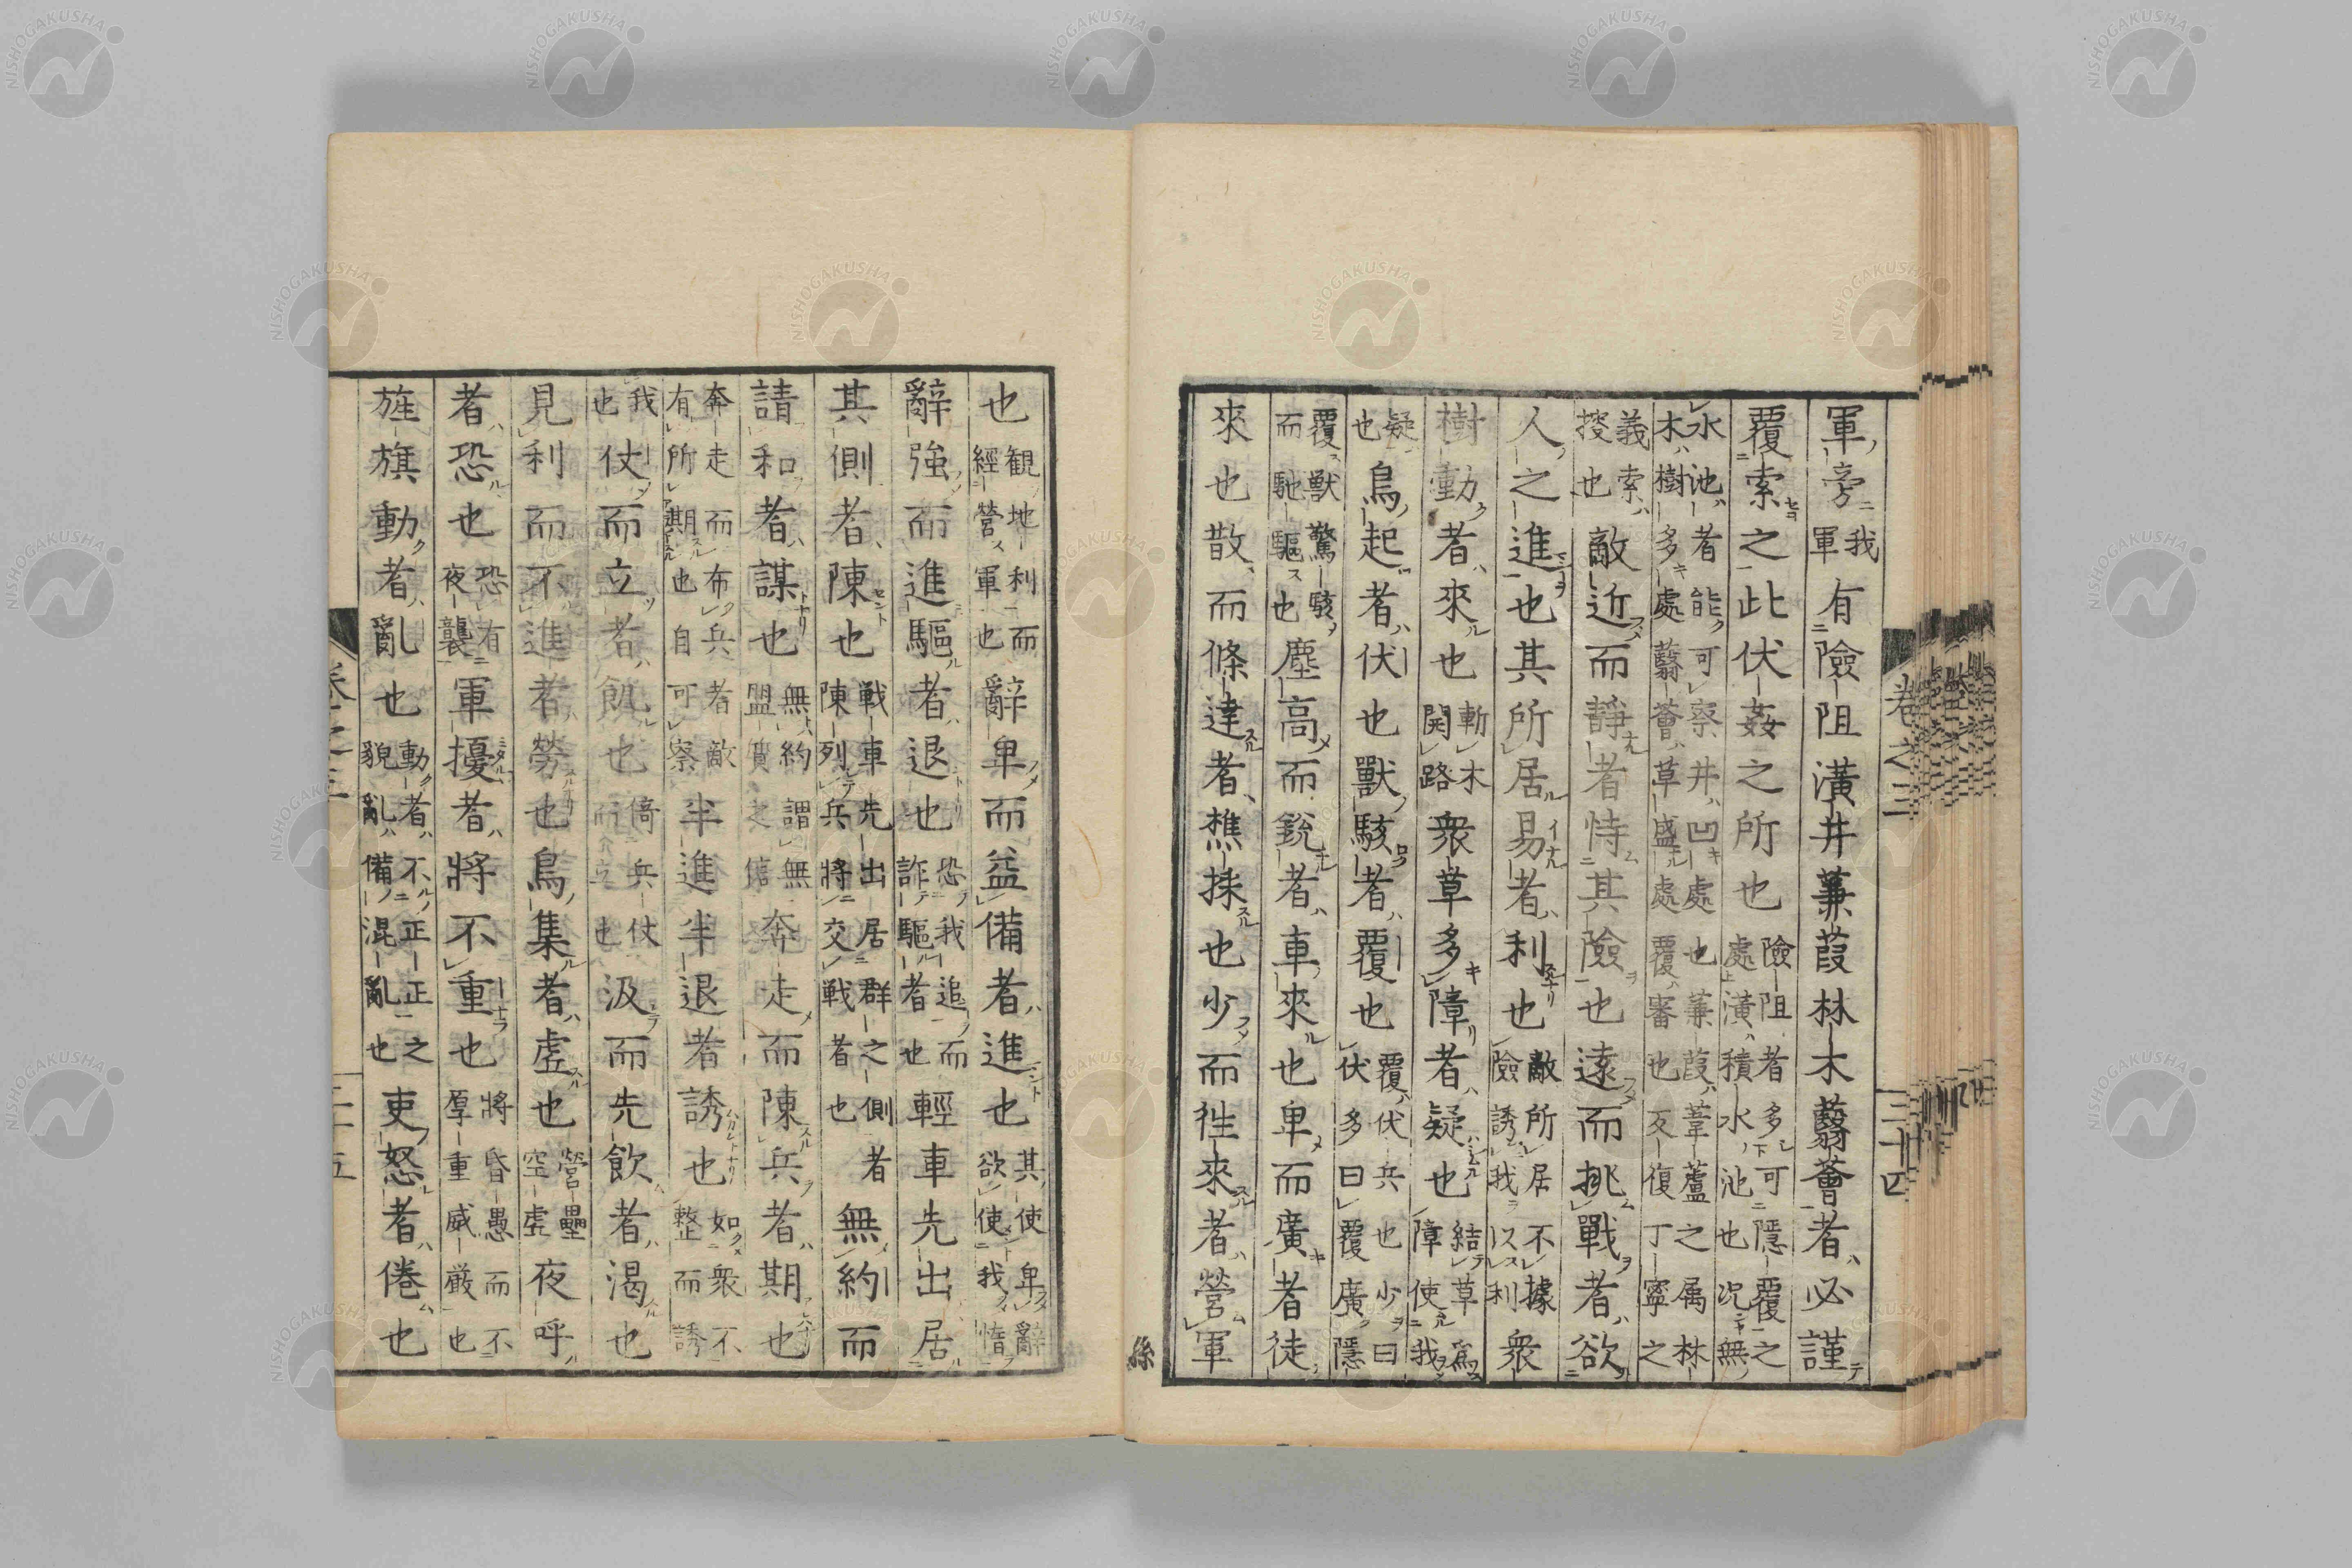 卷之三
三十四
軍旁我軍有險阻潢井蒹葭林木蘙薈者必謹
覆索之此伏姦之所也險阻者多可隱覆之處潢積水池也況無
水池者能可察井凹處也蒹葭葦蘆之属林木樹多處蘙薈草盛處覆審也反復丁寧之
義索搜也敵近而靜者恃其險也遠而挑戰者欲
人之進也其所居易者利也敵所居不據險誘我以利衆
樹動者來也斬木開路衆草多障者疑也結草為障使我
疑也鳥起者伏也獸駭者覆也覆伏兵也少曰伏多曰覆廣隱
覆獸驚駭而馳驅也塵高而銳者車來也卑而廣者徒
來也散而條達者樵採也少而往來者營軍
也観地利而經營軍也辭卑而益備者進也其使卑辭欲使我惰
辭強而進驅者退也恐我追而詐驅者也輕車先出居
其側者陳也戦車先出居群之側者陳列兵將交戦者也無約而
請和者謀也無約謂無盟質之信奔走而陳兵者期也
奔走而布兵者敵有所期也自可察半進半退者誘也如衆不整而誘
我也仗而立者飢也倚兵仗而立也汲而先飲者渴也
見利而不進者勞也鳥集者虚也營壘空虚夜呼
者恐也恐有夜襲軍擾者將不重也將昏愚而不厚重威厳也
旌旗動者亂也動者不正正之貌亂備混亂也吏怒者倦也